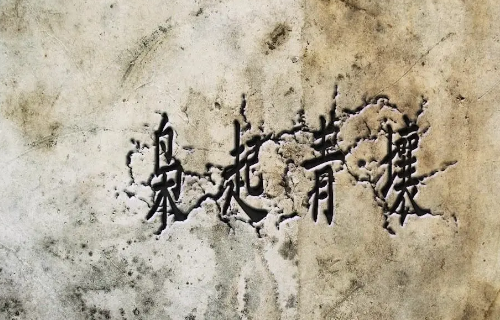 枭起青壤